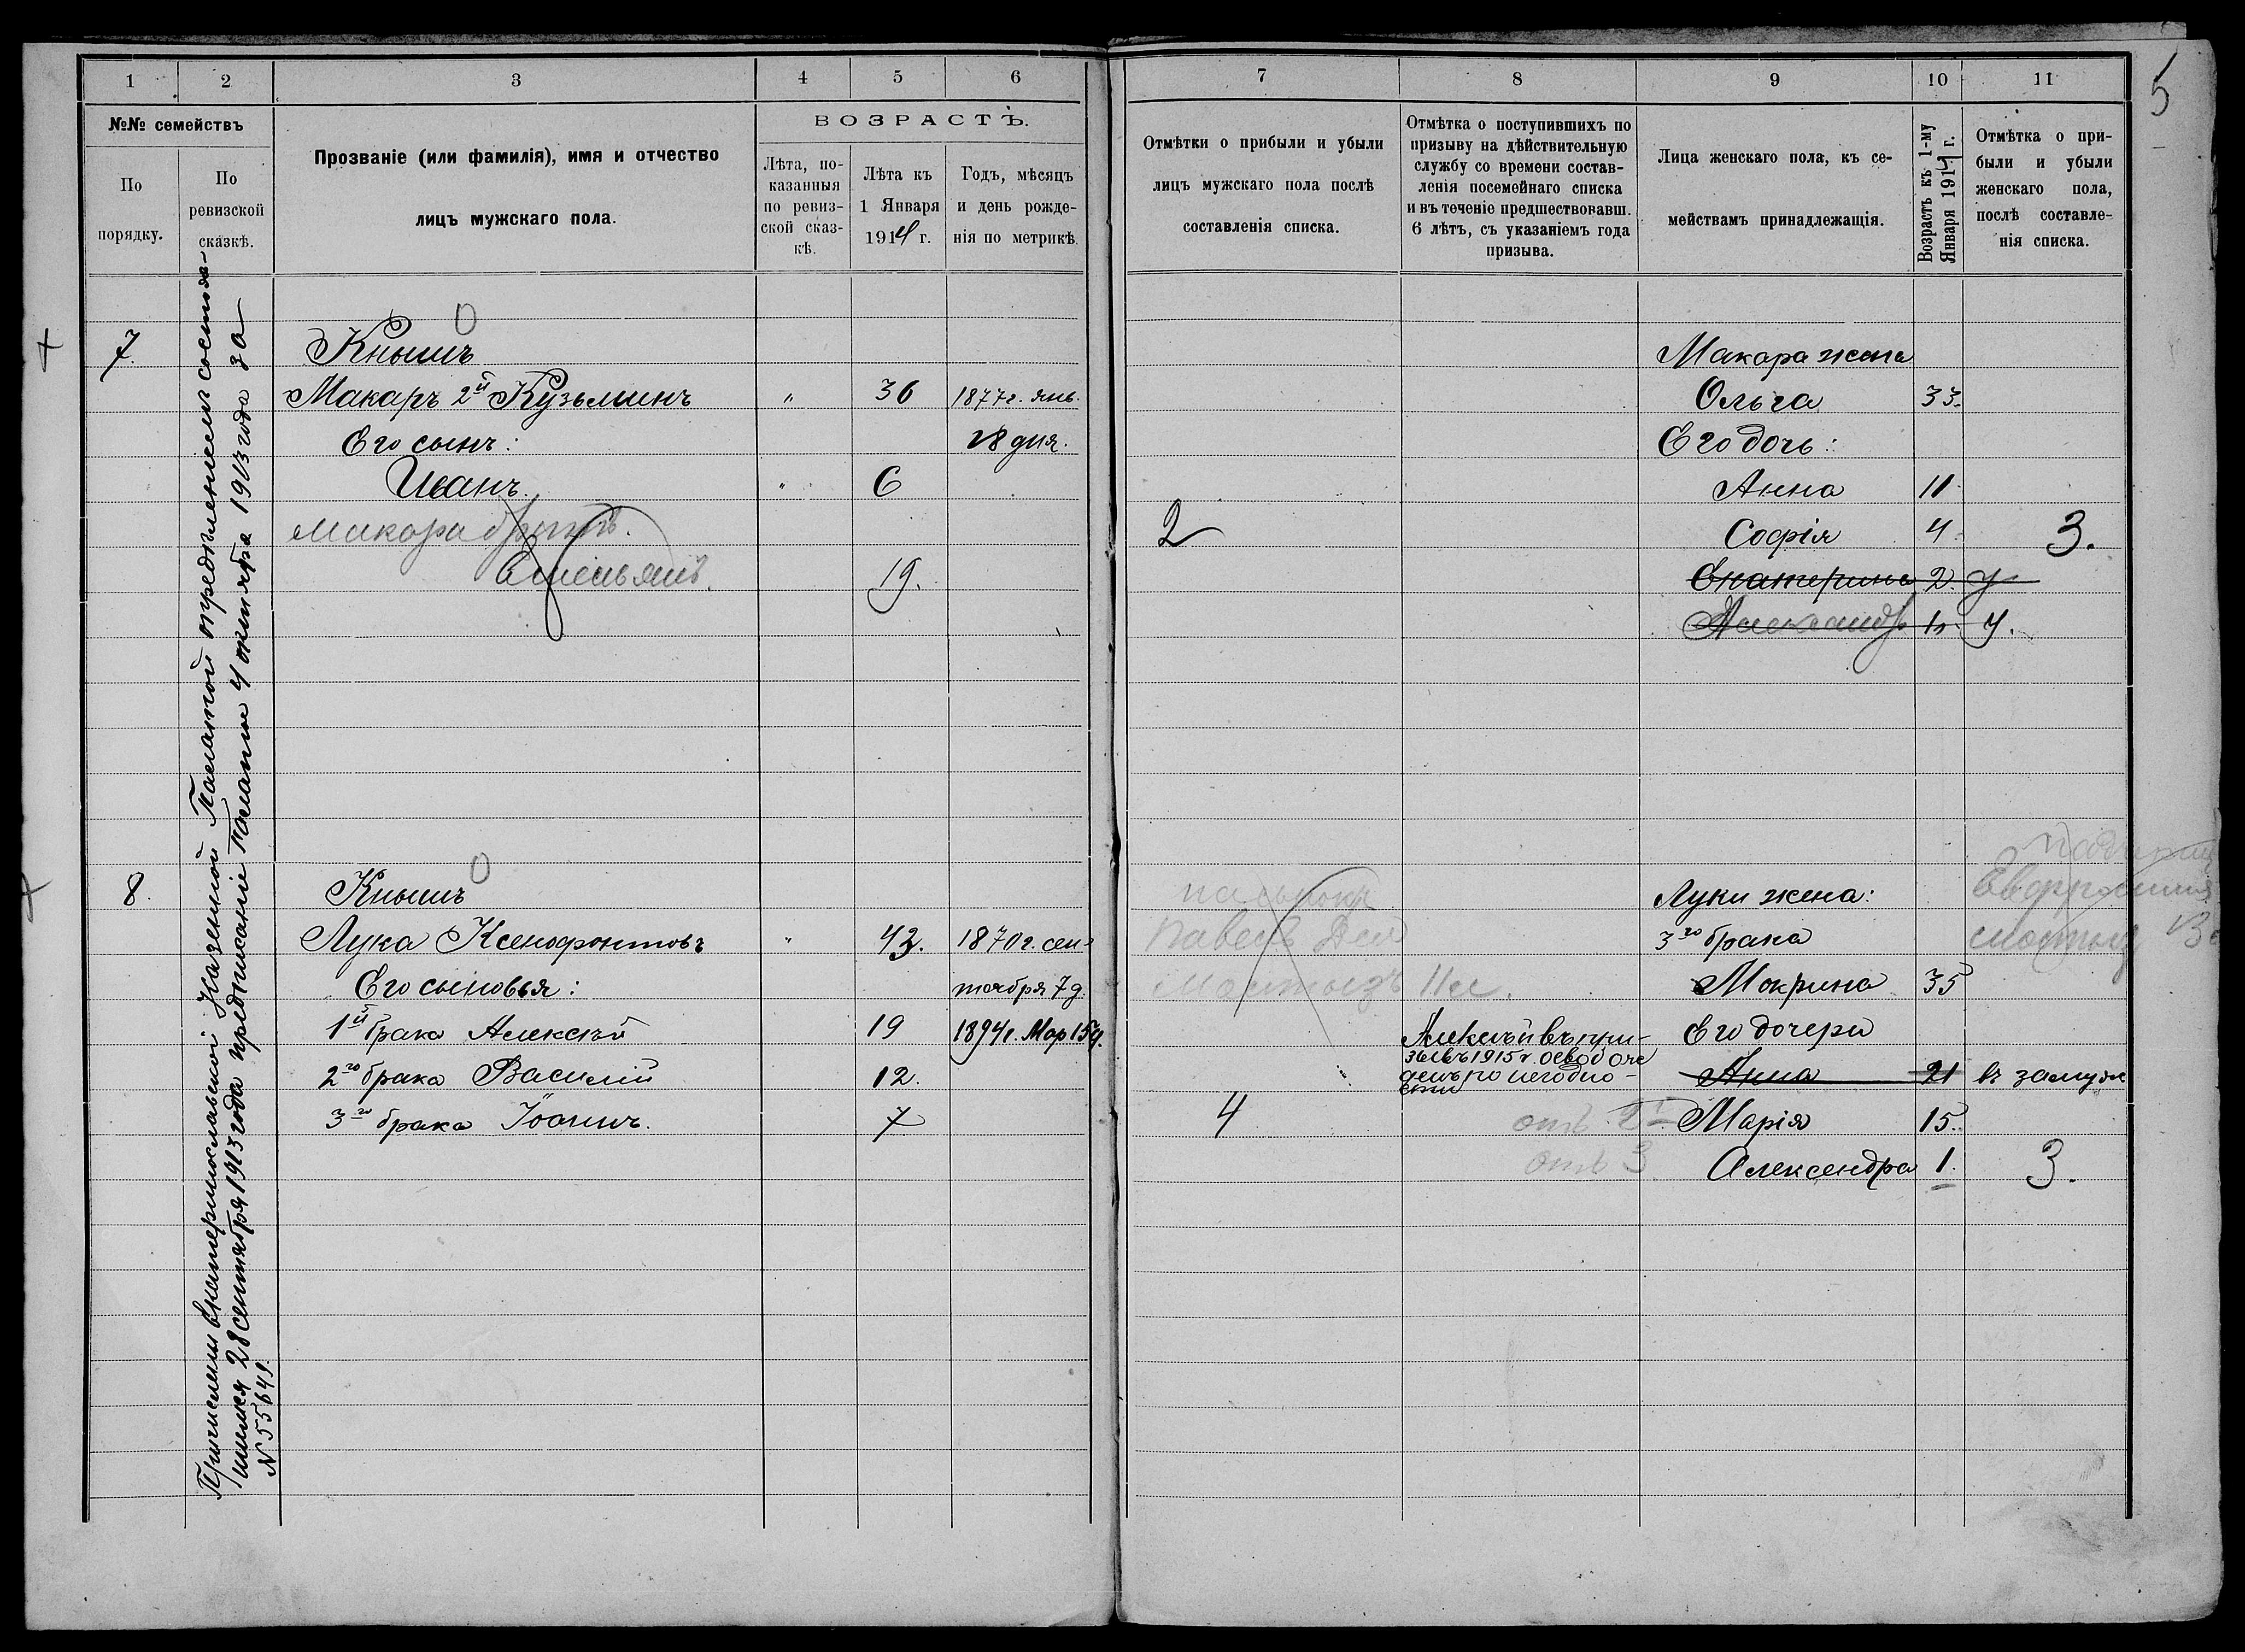 5
1 2 3 4 5 6 7 8 9 10 11
№№ семействъ
По порядку.
По ревизской сказкѣ.
Прозваніе (или фамилія), имя и отчество
лицъ мужскаго пола.
ВОЗРАСТЪ.
Лѣта, по-
казанныя
по ревиз-
ской сказ-
кѣ.
Лѣта къ
1 Января
1914 г.
Годъ, мѣсяцъ
и день рожде-
нія по метрикѣ.
Отмѣтки о прибыли и убыли
лицъ мужскаго пола послѣ
составленія списка.
Отмѣтка о поступившихъ по
призыву на дѣйствительную
службу со времени состав-
ленія посемейнаго списка
и въ теченіе предшествовавш.
6 лѣтъ, съ указаніемъ года
призыва.
Лица женскаго пола, къ се-
мействамъ принадлежащія.
Возрастъ къ 1-му
Января 1914 г.
Отмѣтка о при-
были и убыли
женскаго пола,
послѣ составле-
нія списка.
Причислены Екатеринославской Казенной Палатой опредѣленіемъ состояв-
шимся 28 сентября 1913 года предписаніе Палаты 4 октября 1913 года за
№ 55649.
7. Кнышъ
Макаръ 2й Кузьминъ " 36 1877 г. янв.
Его сынъ: 28 дня.
Иванъ. " 6
Макара братъ.
Емельянъ. 19.
2
Макара жена
Ольга 33.
Его дочь:
Анна 11
Софія 4 3.
Екатерина 2. у
Александр 1 у.
8. Кнышъ
Лука Ксенофонтовъ " 43. 1870 г. сен-
Его сыновья: тября 7 д.
1й брака Алексѣй 19 1894 г. Мар 15 д.
2го брака Василій 12.
3го брака Іоаннъ. 7
Павелъ
11 л.
4
Алексѣй въ при-
зывъ 1915 г. освобож
денъ по негодно-
сти
Луки жена:
3го брака
Мокрина 35
Его дочери
Анна 21 въ замуж
отъ 2й Марія 15.
отъ 3 Александра 1. 3.
Евфросинія